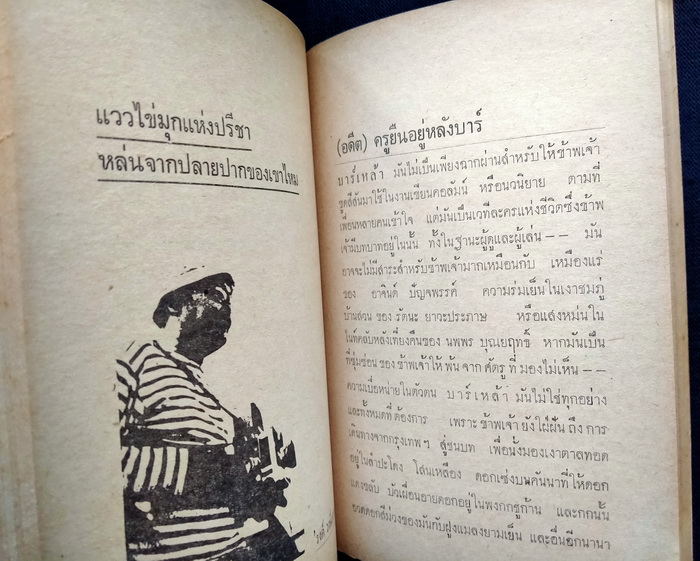 แววไข่มุกแห่งปรีชา
หล่นจากปลายปากของเขาไหม
(อดีต) ครูยืนอยู่หลังบาร์
บาร์เหล้า มันไม่เป็นเพียงฉากผ่านสำหรับให้ข้าพเจ้า
ขูดสีสันมาใช้ในงานเขียนคอลัมน์ หรือนวนิยาย ตามที่
เพื่อนหลายคนเข้าใจ แต่มันเป็นเวทีละครแห่งชีวิตซึ่งข้าพ
เจ้ามีบทบาทอยู่ในนั้น ทั้งในฐานะผู้ดูและผู้เล่น—— มัน
อาจจะไม่มีสาระสำหรับข้าพเจ้ามากเหมือนกับ เหมืองแร่
ของ อาจินต์ ปัญจพรรค์ ความร่มเย็นในเงาชมภู่
บ้านสวน ของ รัตนะ ยาวะประภาษ หรือแสงหม่นใน
ไนท์คลับหลังเที่ยงคืนของ นพพร บุณยฤทธิ์ หากมันเป็น
ที่ซุ่มซ่อน ของ ข้าพเจ้าให้ พ้น จาก ศัตรู ที่ มองไม่เห็น ——
ความเบื่อหน่ายในตัวตน บาร์เหล้า มันไม่ใช่ทุกอย่าง
และทั้งหมดที่ ต้องการ เพราะ ข้าพเจ้า ยัง ใฝ่ฝัน ถึง การ
เดินทางจากกรุงเทพฯ สู่ชนบท เพื่อนั่งมองเงาตาลทอด
อยู่ในลำปะโดง โสนเหลือง ดอกเซ่งบนคันนาที่ให้ดอก
แดงขลับ บัวเผื่อนอายดอกอยู่ในพงกกชูก้าน และกกนั้น
อวดดอกสีม่วงของมันกับฝูงแมลงยามเย็น และอื่นอีกนานา